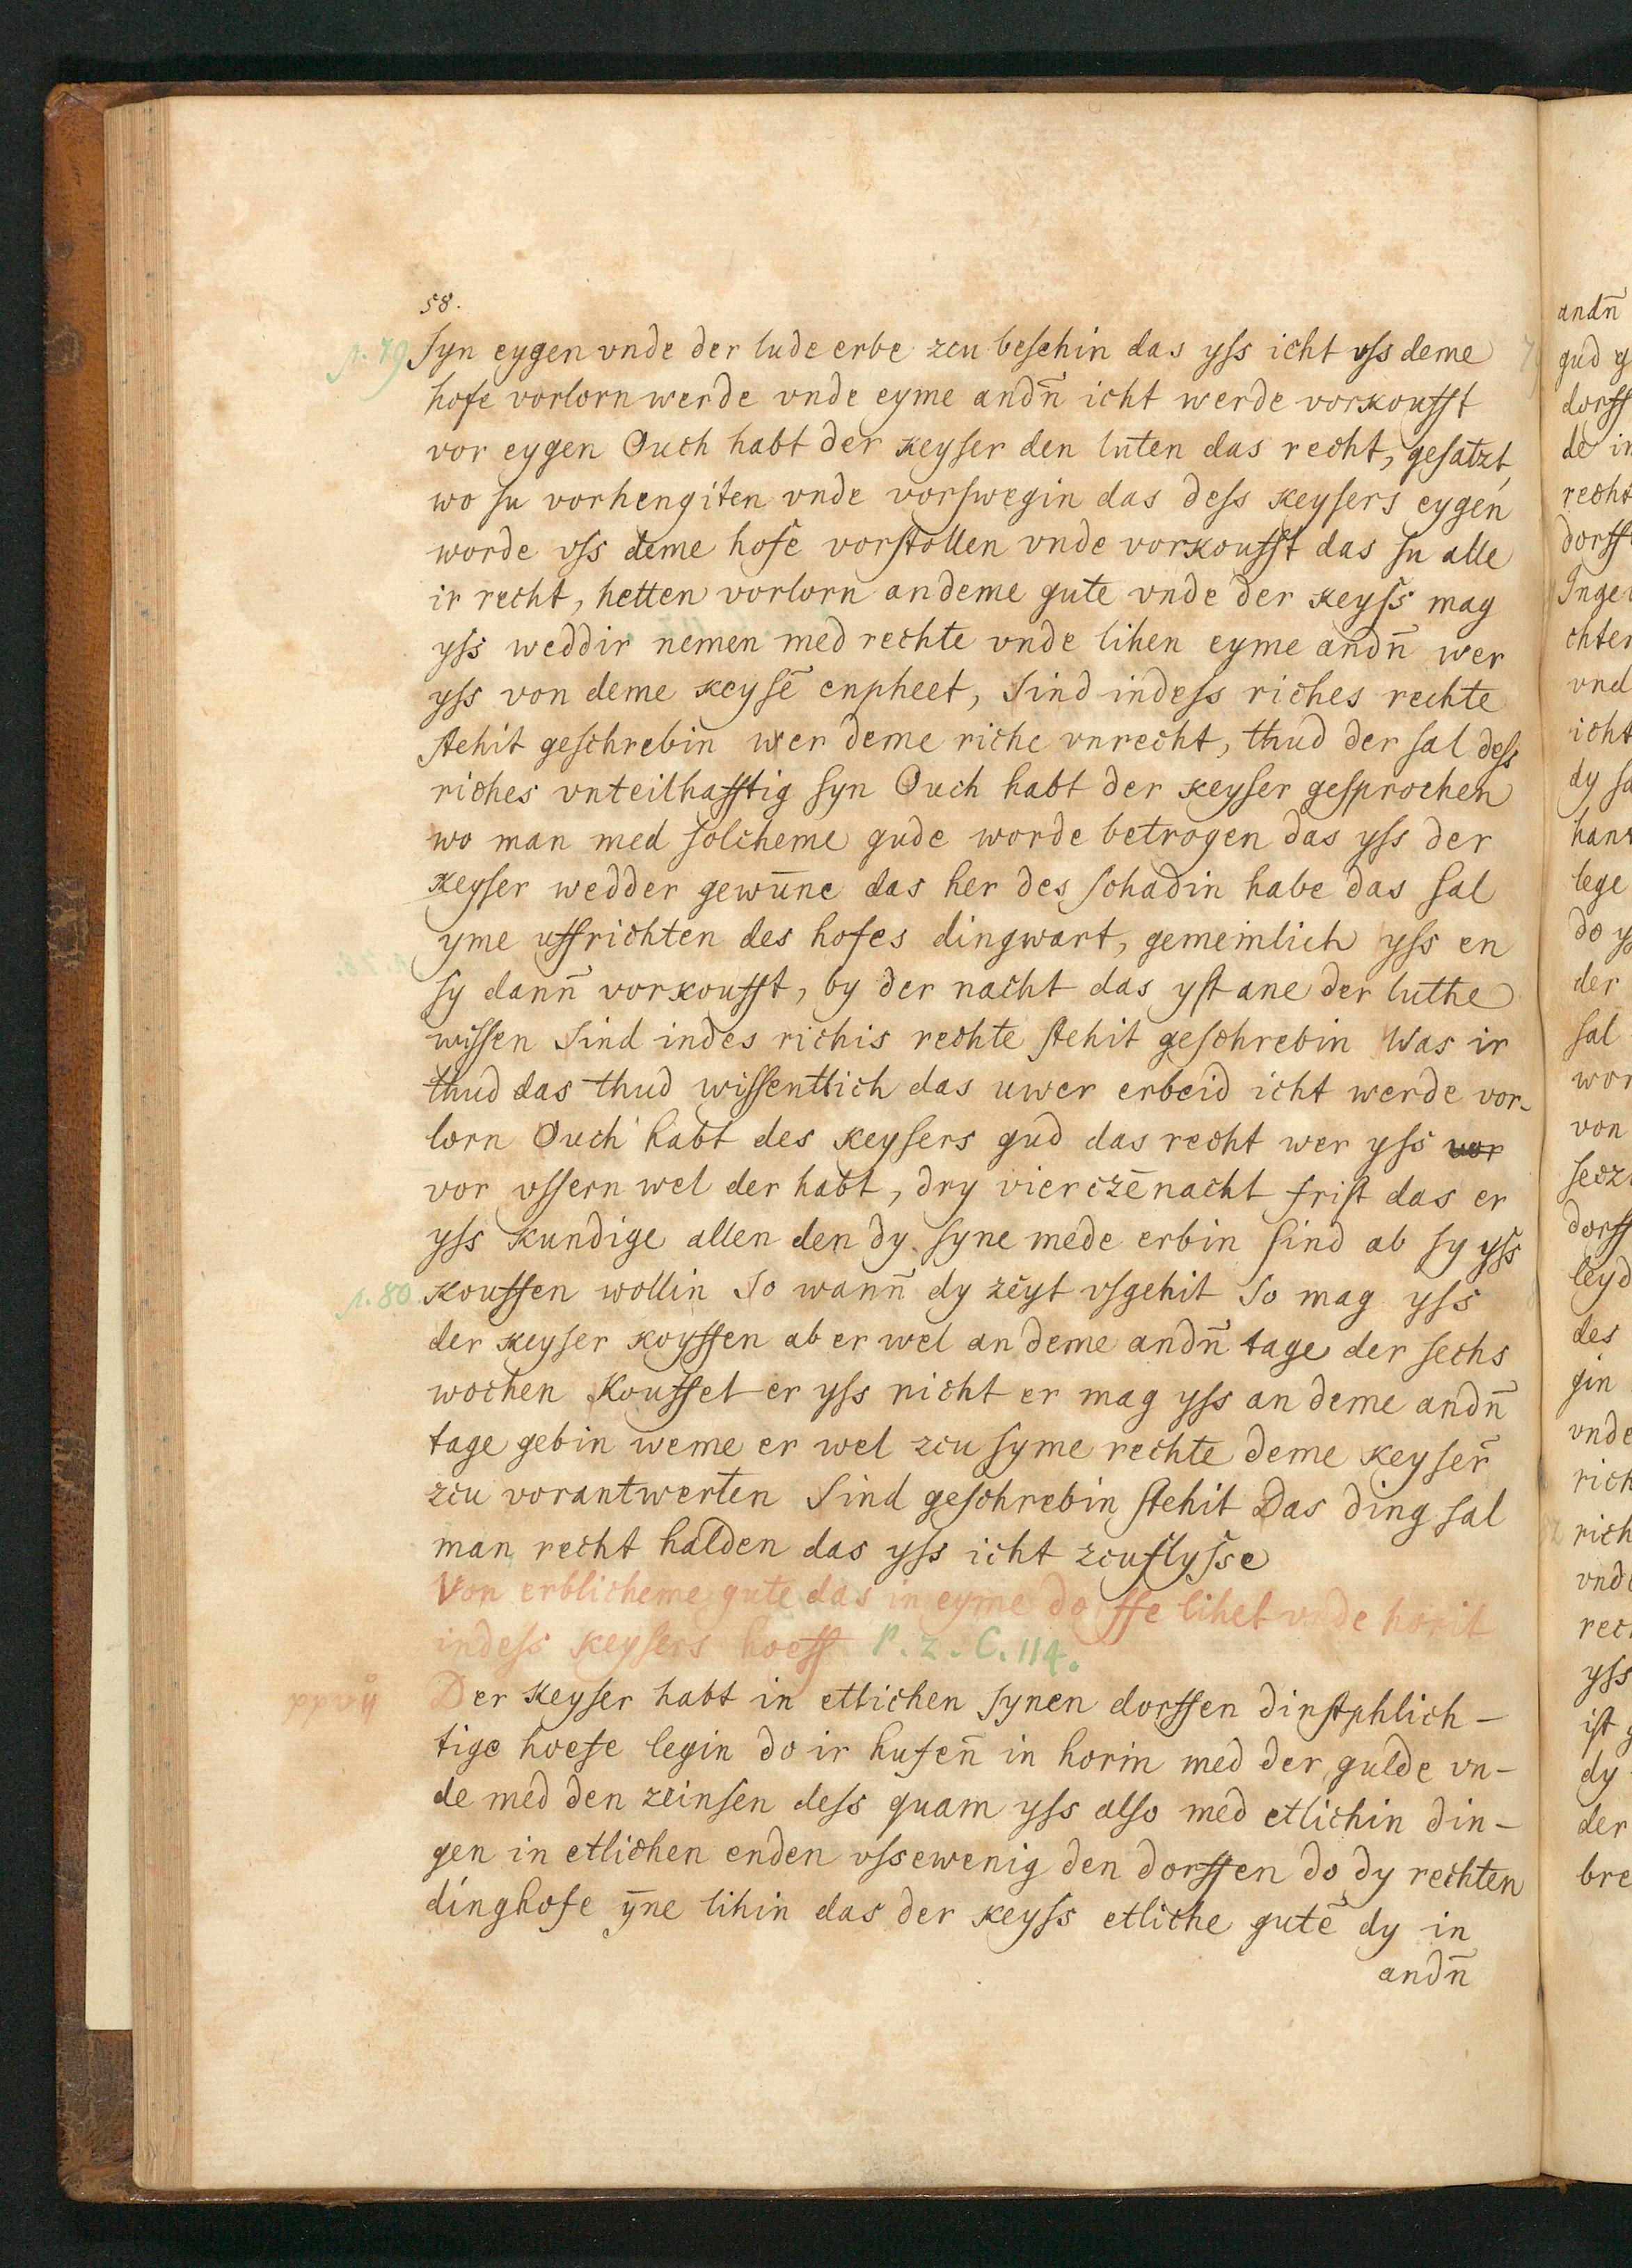 58.
p. 79. syn eygen vnde der lude erbe zcu besehin das yss icht vss deme
hofe vorlorn werde vnde eyme andn̄ icht werde vorkoufft
vor eygen Ouch habt der keyser den luten das recht, gesatzt,
wo su vorhengiten vnde vorswegin das dess keysers eygen
worde vss deme hofe vorstollen vnde vorkoufft das su alle
ir recht, hetten vorlorn an deme gute vnde der keyss mag
yss weddir nemen med rechte vnde lihen eyme andn̄ wer
yss von deme keysē enpheet, Sind indess riches rechte
stehit geschrebin wer deme riche vnrecht, thud der sal dess
riches vnteilhafftig syn Ouch habt der keyser gesprochen
wo man med solcheme gude worde betrogen das yss der
keyser wedder gewūne das her des schadin habe das sal
yme uffrichten des hofes dingwart, gemeinlich yss en
sy dann̄ vorkoufft, by der nacht das yst ane der luthe
wissen Sind indes richis rechte stehit geschrebin Was ir
thud das thud wissentlich das uwer erbeid icht werde vor-
lorn Ouch habt des keysers gud das recht wer yss vor
vor vssern wel der habt, dry vierczēnacht frist das er
yss kundige allen den dy syne mede erbin sind ab sy yss
p. 80. kouffen wollin So wann̄ dy zeyt vsgehit So mag yss
der keyser koyffen ab er wel an deme andn̄ tage der sechs
wochen Kouffet er yss nicht er mag yss an deme andn̄
tage gebin weme er wel zcu syme rechte deme keyser̄
zcu vorantwerten Sind geschrebin stehit Das ding sal
man recht halden das yss icht zcuflysse
Von erblicheme gute das in eyme dorffe lihet vnde horit
indess keysers hoeff P. 2. C. 114.
Der keyser habt in etlichen synen dorffen dinstphlich-
tige hoefe legin do ir hufen̄ in horin med der gulde vn-
de med den zeinsen dess quam yss also med etlichin din-
gen in etlichen enden vssewenig den dorffen do dy rechten
dinghofe ȳne lihin das der keyss etliche gutē dy in
andn̄